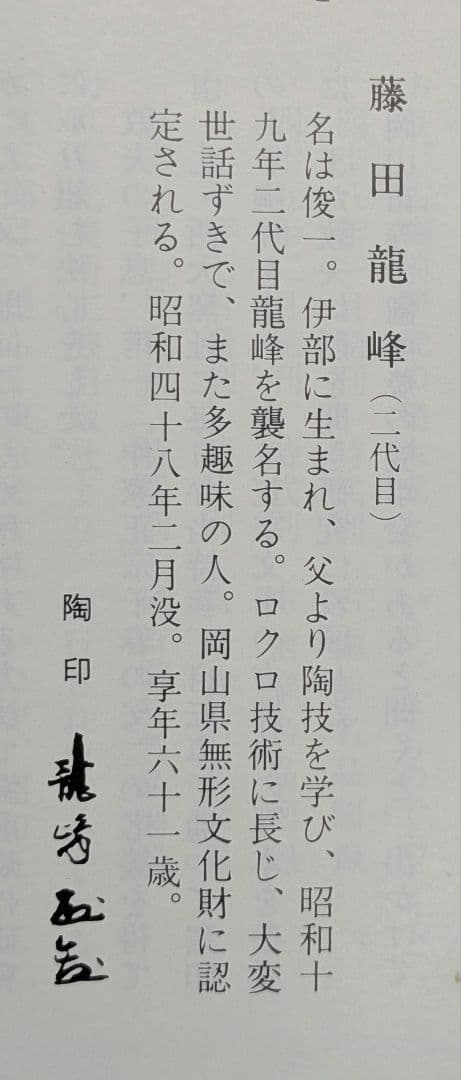 藤田龍峰(二代目)
名は俊一。伊部に生まれ、父より陶技を学び、昭和十
九年二代目龍峰を襲名する。ロクロ技術に長じ、大変
世話ずきで、また多趣味の人。岡山県無形文化財に認
定される。昭和四十八年二月没。享年六十一歳。
陶印
龍峰